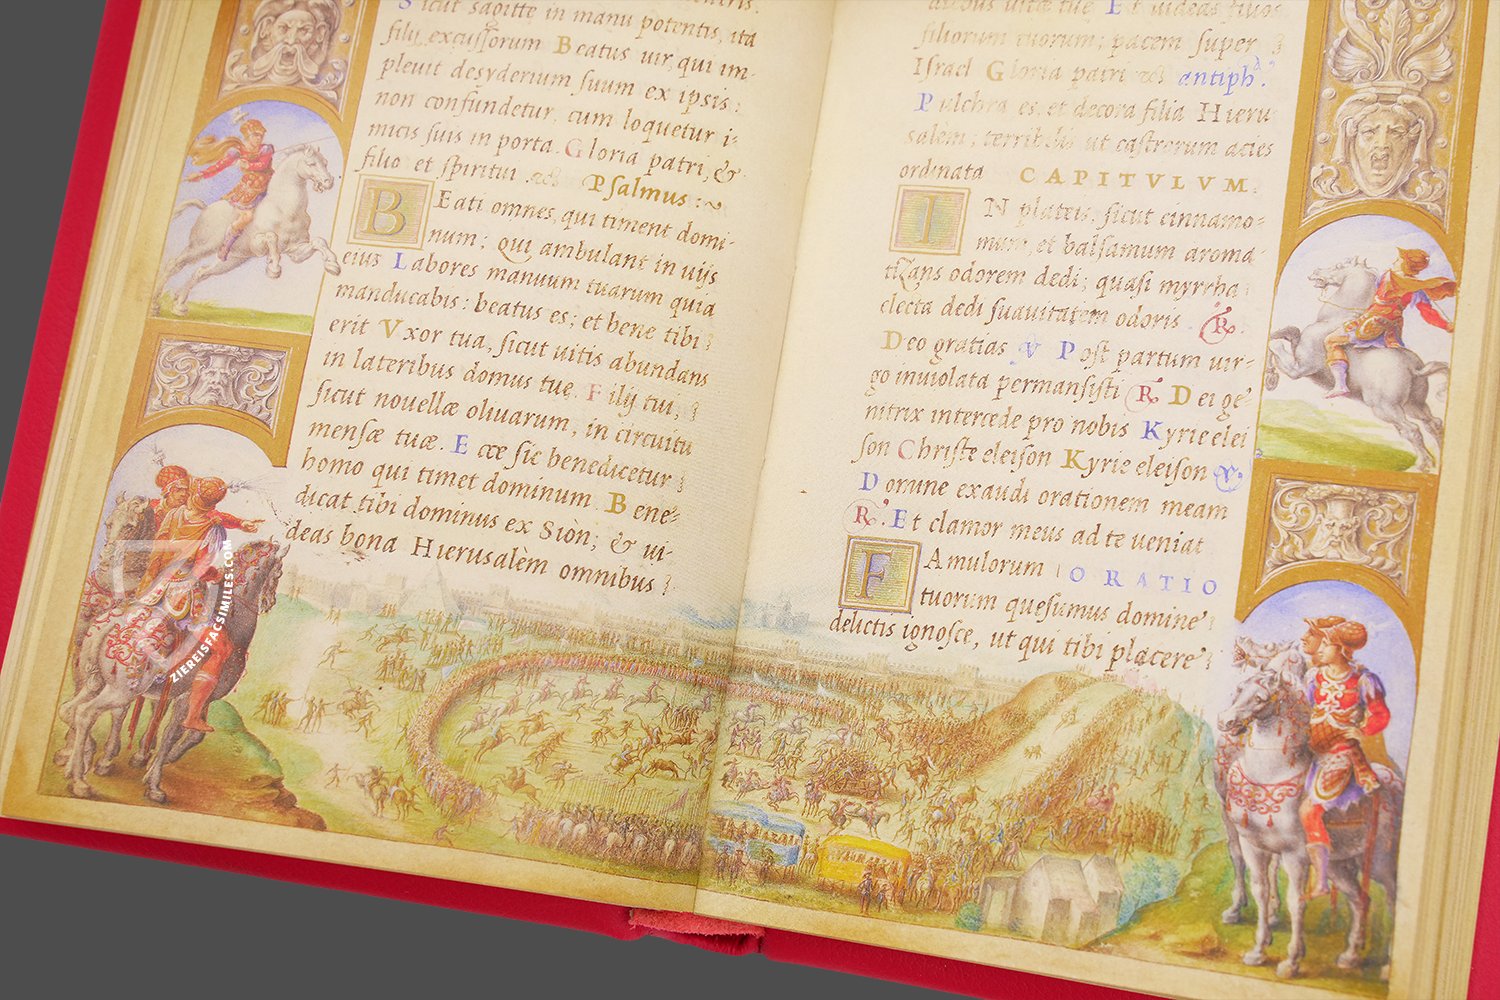 Sicut sagitte in manu potentis, ita
filij excussorum Beatus uir, qui im-
pleuit desyderium suum ex ipsis:
non confundetur, cum loquetur i-
micis suis in porta. Gloria patri, &
filio et spiritui Psalmus:
BEati omnes, qui timent domi-
num: qui ambulant in uijs
eius Labores manuum tuarum quia
manducabis: beatus es; et bene tibi
erit Vxor tua, sicut uitis abundans
in lateribus domus tue. Filij tui,
sicut nouellæ oliuarum, in circuitu
mensæ tuæ. Ecce sic benedicetur
homo qui timet dominum Bene-
dicat tibi dominus ex Siòn; & ui-
deas bona Hierusalèm omnibus
diebus uitæ tue Et uideas filios
filiorum tuorum; pacem super
Israel Gloria patri antiph.
Pulchra es, et decora filia Hieru
salèm; terribilis ut castrorum acies
ordinata CAPITVLVM.
IN plateis, sicut cinnamo-
mum, et balsamum aroma-
tizans odorem dedi; quasi myrrha
electa dedi suauitatem odoris. R.
Deo gratias V Post partum uir-
go inuiolata permansisti R. Dei ge-
nitrix intercede pro nobis Kyrie elei
son Christe eleison Kyrie eleison V.
Domine exaudi orationem meam
R. Et clamor meus ad te ueniat
FAmulorum ORATIO
tuorum quesumus domine
delictis ignosce, ut qui tibi placere
ZIEREISFACSIMILES.COM